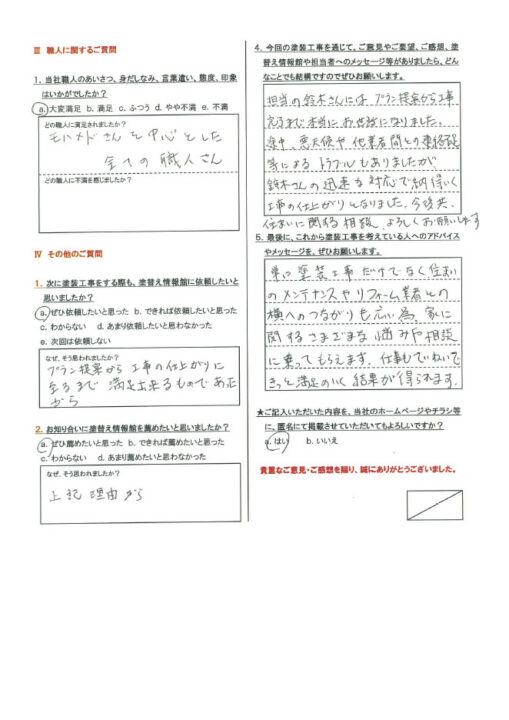 III 職人に関するご質問
1. 当社職人のあいさつ、身だしなみ、言葉遣い、態度、印象
はいかがでしたか?
a.大変満足 b. 満足 c. ふつう d. やや不満 e. 不満
どの職人に満足されましたか?
モハメドさんを中心とした
全ての職人さん
どの職人に不満を感じましたか?
IV その他のご質問
1. 次に塗装工事をする際も、塗替え情報館に依頼したいと
思いましたか?
a.ぜひ依頼したいと思った b. できれば依頼したいと思った
c. わからない d. あまり依頼したいと思わなかった
e. 次回は依頼しない
なぜ、そう思われましたか?
プラン提案から工事の仕上がりに
至るまで満足出来るものであった
から
2. お知り合いに塗替え情報館を薦めたいと思いましたか?
a.ぜひ薦めたいと思った b. できれば薦めたいと思った
c. わからない d. あまり薦めたいと思わなかった
なぜ、そう思われましたか?
上記理由から
4. 今回の塗装工事を通じて、ご意見やご要望、ご感想、塗
替え情報館や担当者へのメッセージ等がありましたら、どん
なことでも結構ですのでぜひお願いします。
担当の鈴木さんにはプラン提案から工事
完了まで本当にお世話になりました。
途中、悪天候や他業者間との連絡
等によるトラブルもありましたが
鈴木さんの迅速な対応で納得いく
工事の仕上がりとなりました。今後共、
住まいに関する相談、よろしくお願いします
5. 最後に、これから塗装工事を考えている人へのアドバイス
やメッセージを、ぜひお願いします。
単に塗装工事だけでなく住まい
のメンテナンスやリフォーム業者との
横へのつながりも広い為、家に
関するさまざまな悩みや相談
に乗ってもらえます。仕事もていねいで
きっと満足のいく結果が得られます。
★ご記入いただいた内容を、当社のホームページやチラシ等
に、匿名にて掲載させていただいてもよろしいですか?
a. はい b. いいえ
貴重なご意見・ご感想を賜り、誠にありがとうございました。